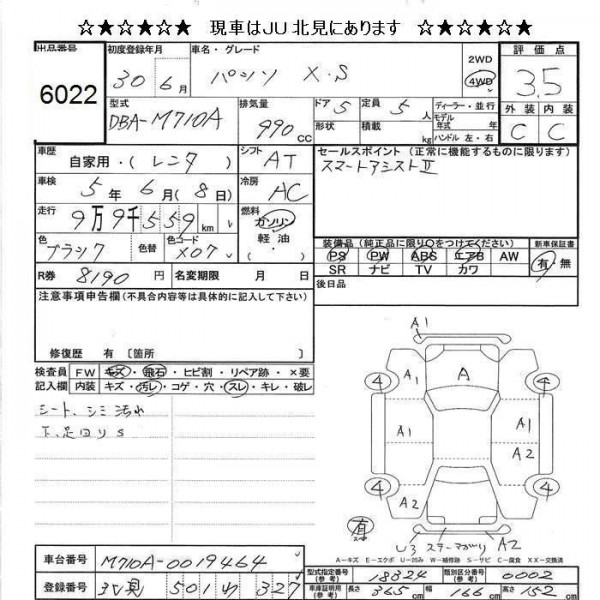 ☆★☆★☆★ 現車はJU北見にあります ☆★☆★☆★
出品番号 6022
初度登録年月 30年6月
車名・グレード パッソ X.S
2WD 4WD
評価点 3.5
型式 DBA-M710A
排気量 990cc
ドア 5 定員 5人
形状 積載 kg
ディーラー・並行
モデル年式 年式
ハンドル 左・右
外装 内装
C C
車歴 自家用・(レンタ) シフト AT
セールスポイント (正常に機能するものに限ります)
スマートアシストⅡ
車検 5年6月(8日) 冷房 AC
走行 9万9千559km
燃料 ガソリン
軽油
色 ブラック 色替 色コード X07
装備品(純正品に限り○をつけてください) 新車保証書
PS PW ABS エアB AW 有・無
SR ナビ TV カワ
R券 8190円 名変期限 月 日
後日品
注意事項申告欄(不具合内容等は具体的に記入して下さい)
修復歴 有 〔箇所 〕
検査員記入欄
FW キズ・飛石・ヒビ割・リペア跡・×要
内装 キズ・汚レ・コゲ・穴・スレ・キレ・破レ
シート、シミ汚れ
下、足回りS
A1
A
4 4
A1 A1
A2
4 4
A2
有
U3 ステーマガリ A2
A-キズ E-エクボ U-凹み W-補修跡 S-サビ C-腐食 XX-交換済
車台番号 M710A-0019464
登録番号 501 わ 327
型式指定番号(参考) 18324 類別区分番号(参考) 0002
車庫証明用(参考) 長さ 365cm 幅 166cm 高さ 152cm